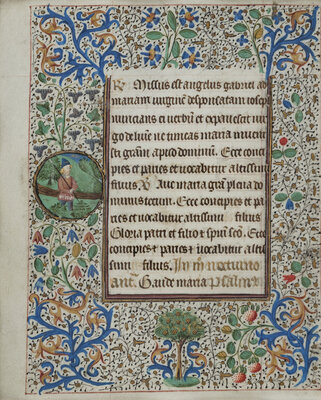 R Missus est angelus gabriel ad
mariam virginē desponsatam ioseph
nuntians ei verbū et expauescit vir
go de lumīe ne timeas maria inueni
sti grām apud dominum. Ecce conci
pies et paries et vocabitur altissimi
filius. V Aue maria grā plena do
minus tecum. Ecce concipies et pa
ries et vocabitur altissimi filius
Gloria patri et filio et spūi scō. Ecce
concipies et paries et vocabitur altis
simi filius. In nocturno
ant. Gaude maria psalm